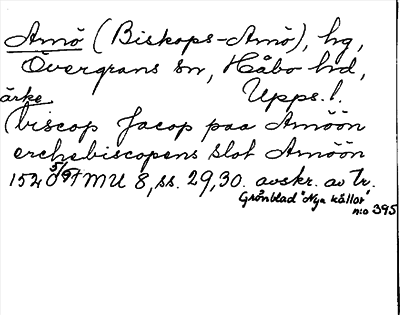 Arnö (Biskops-Arnö), hg,
Övergrans sn, Håbo hd,
Upps. l.
ärke
(biscop Jacop paa Arnöön
erchebiscopens slot Arnöön
1520 5/9 FMU 8, ss. 29, 30. avskr. av tr.
Grönblad "Nya källor"
n:o 395